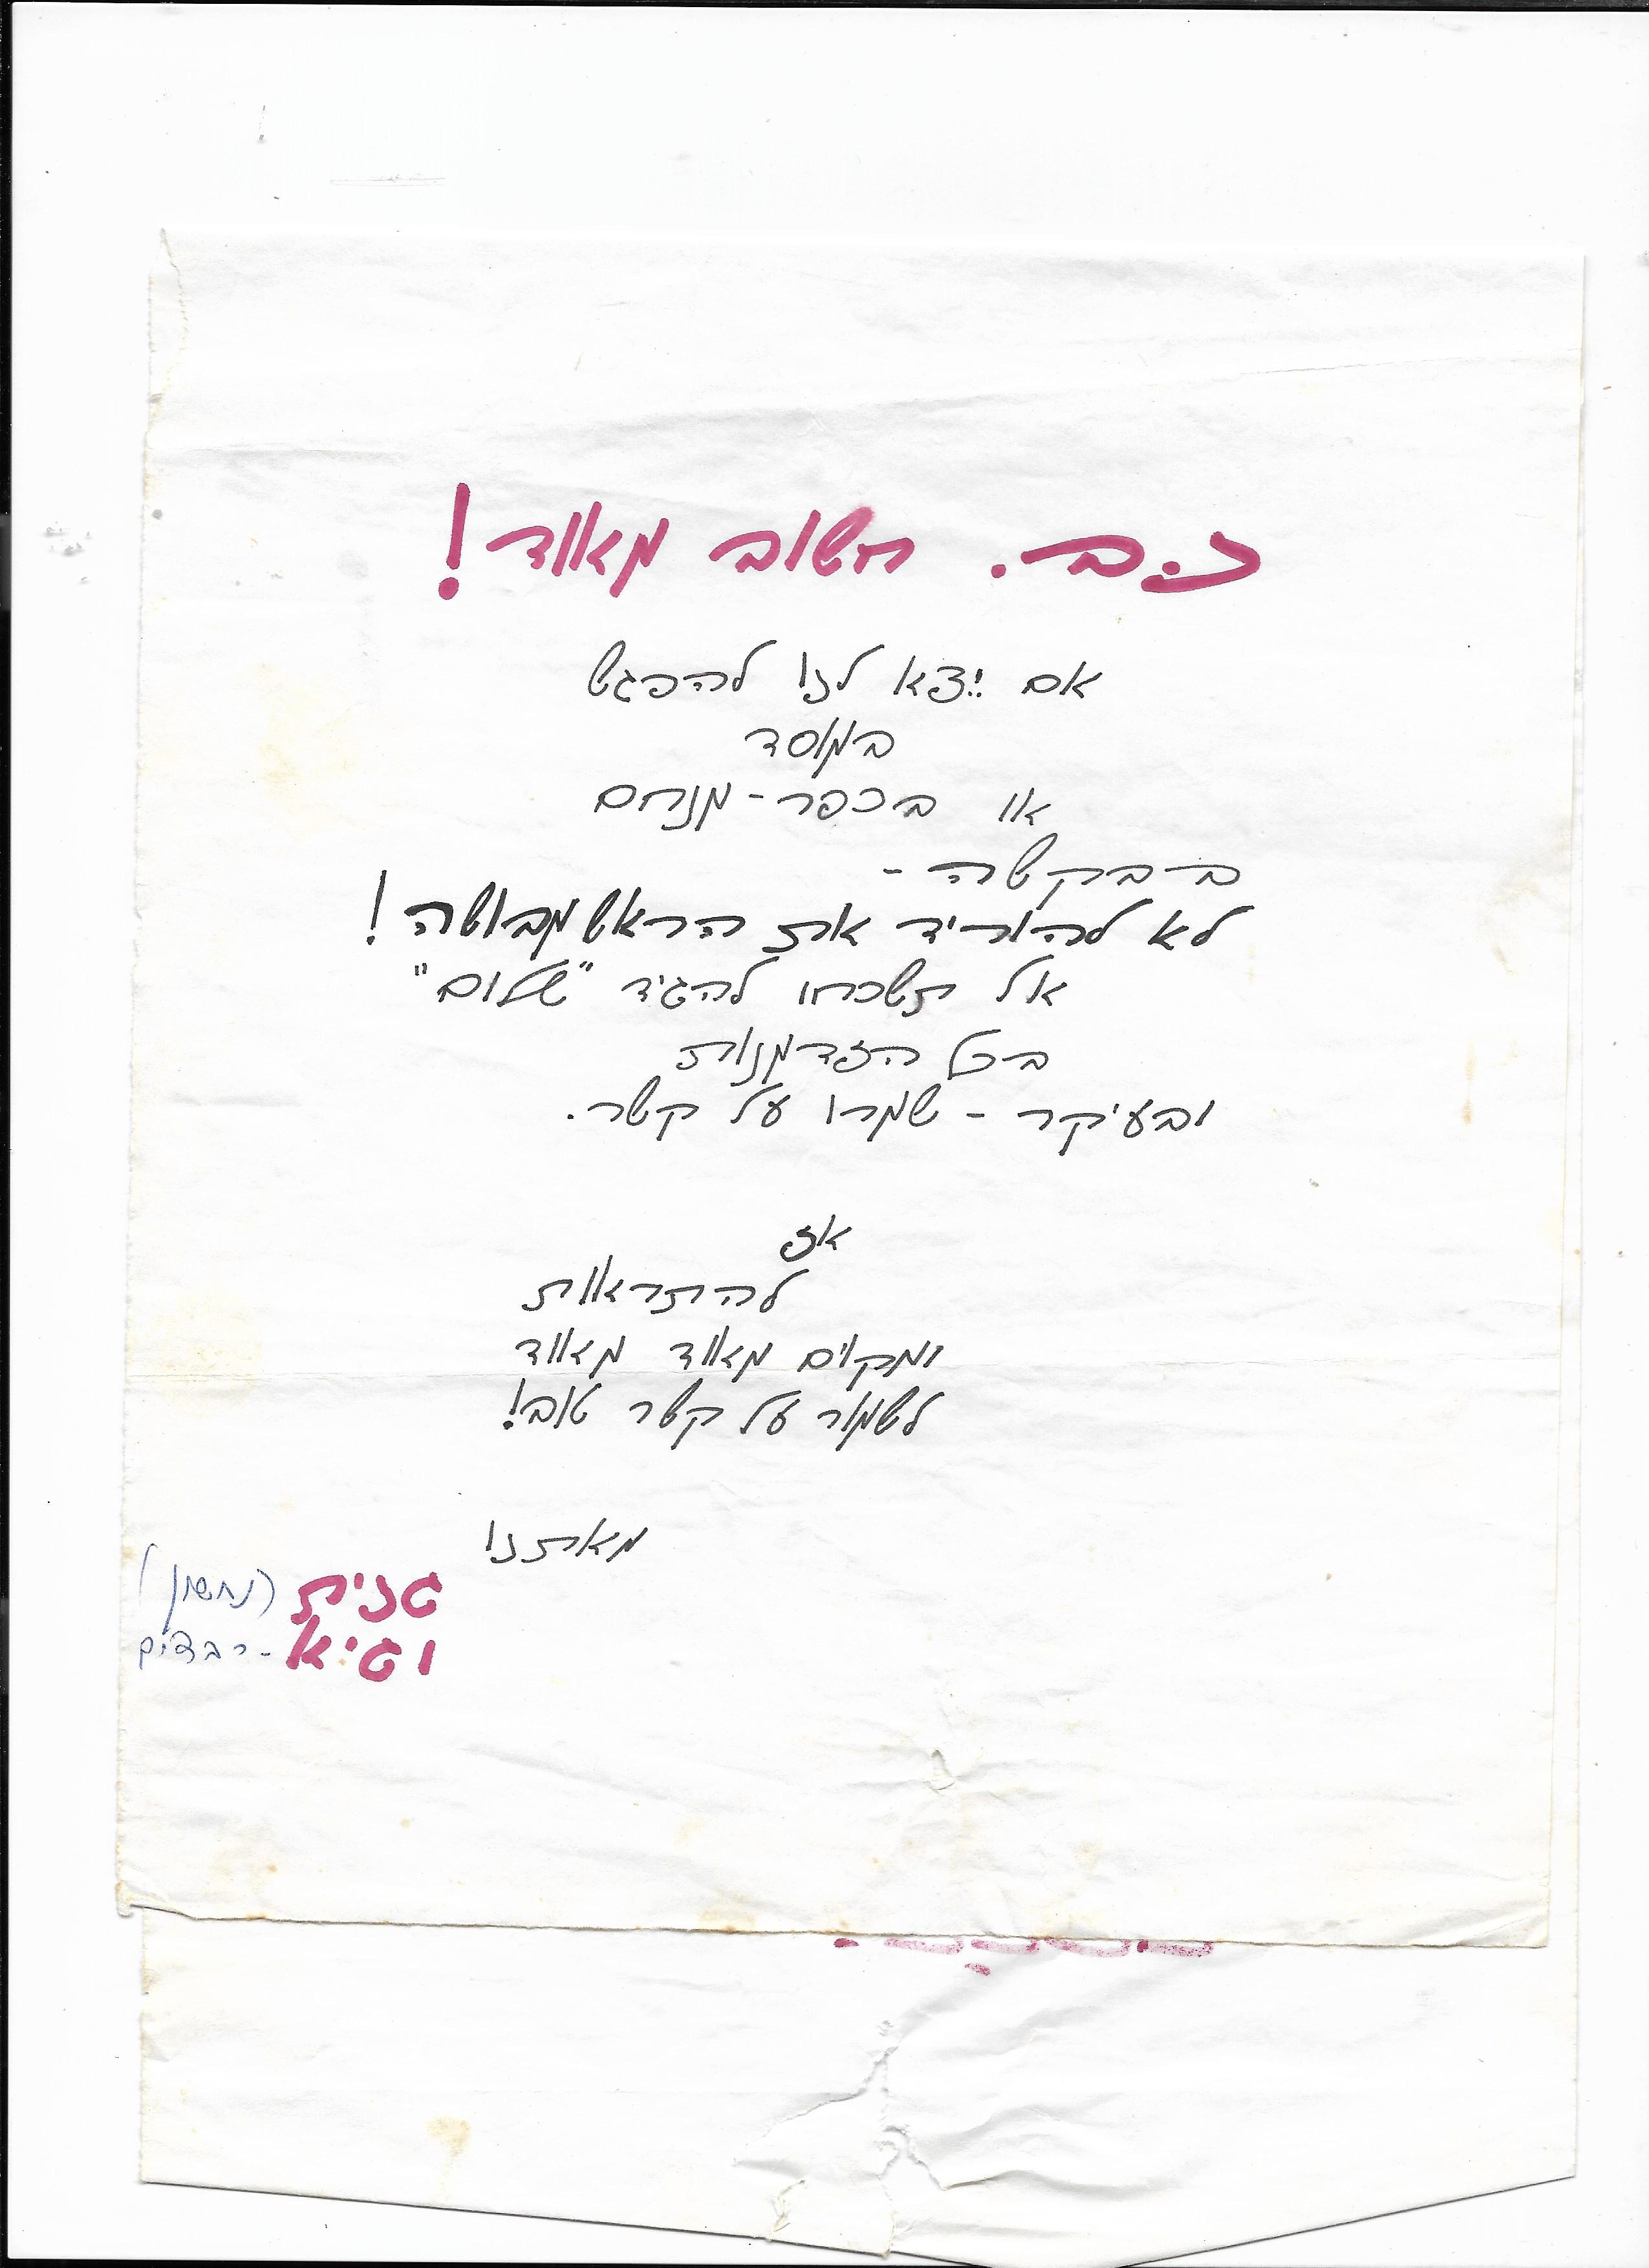 נ.ב. חשוב מאוד!
אם ייצא לנו להפגש
במוסד
או בכפר-מנחם
ב-בקשה -
לא להוריד את הראש מבושה!
אל תשכחו להגיד "שלום"
בכל הזדמנות
ובעיקר - שמרו על קשר.
אז
להתראות
ומקוים מאוד מאוד
לשמור על קשר טוב!
מאתנו
גנית (נחשון)
וגיא - רבדים